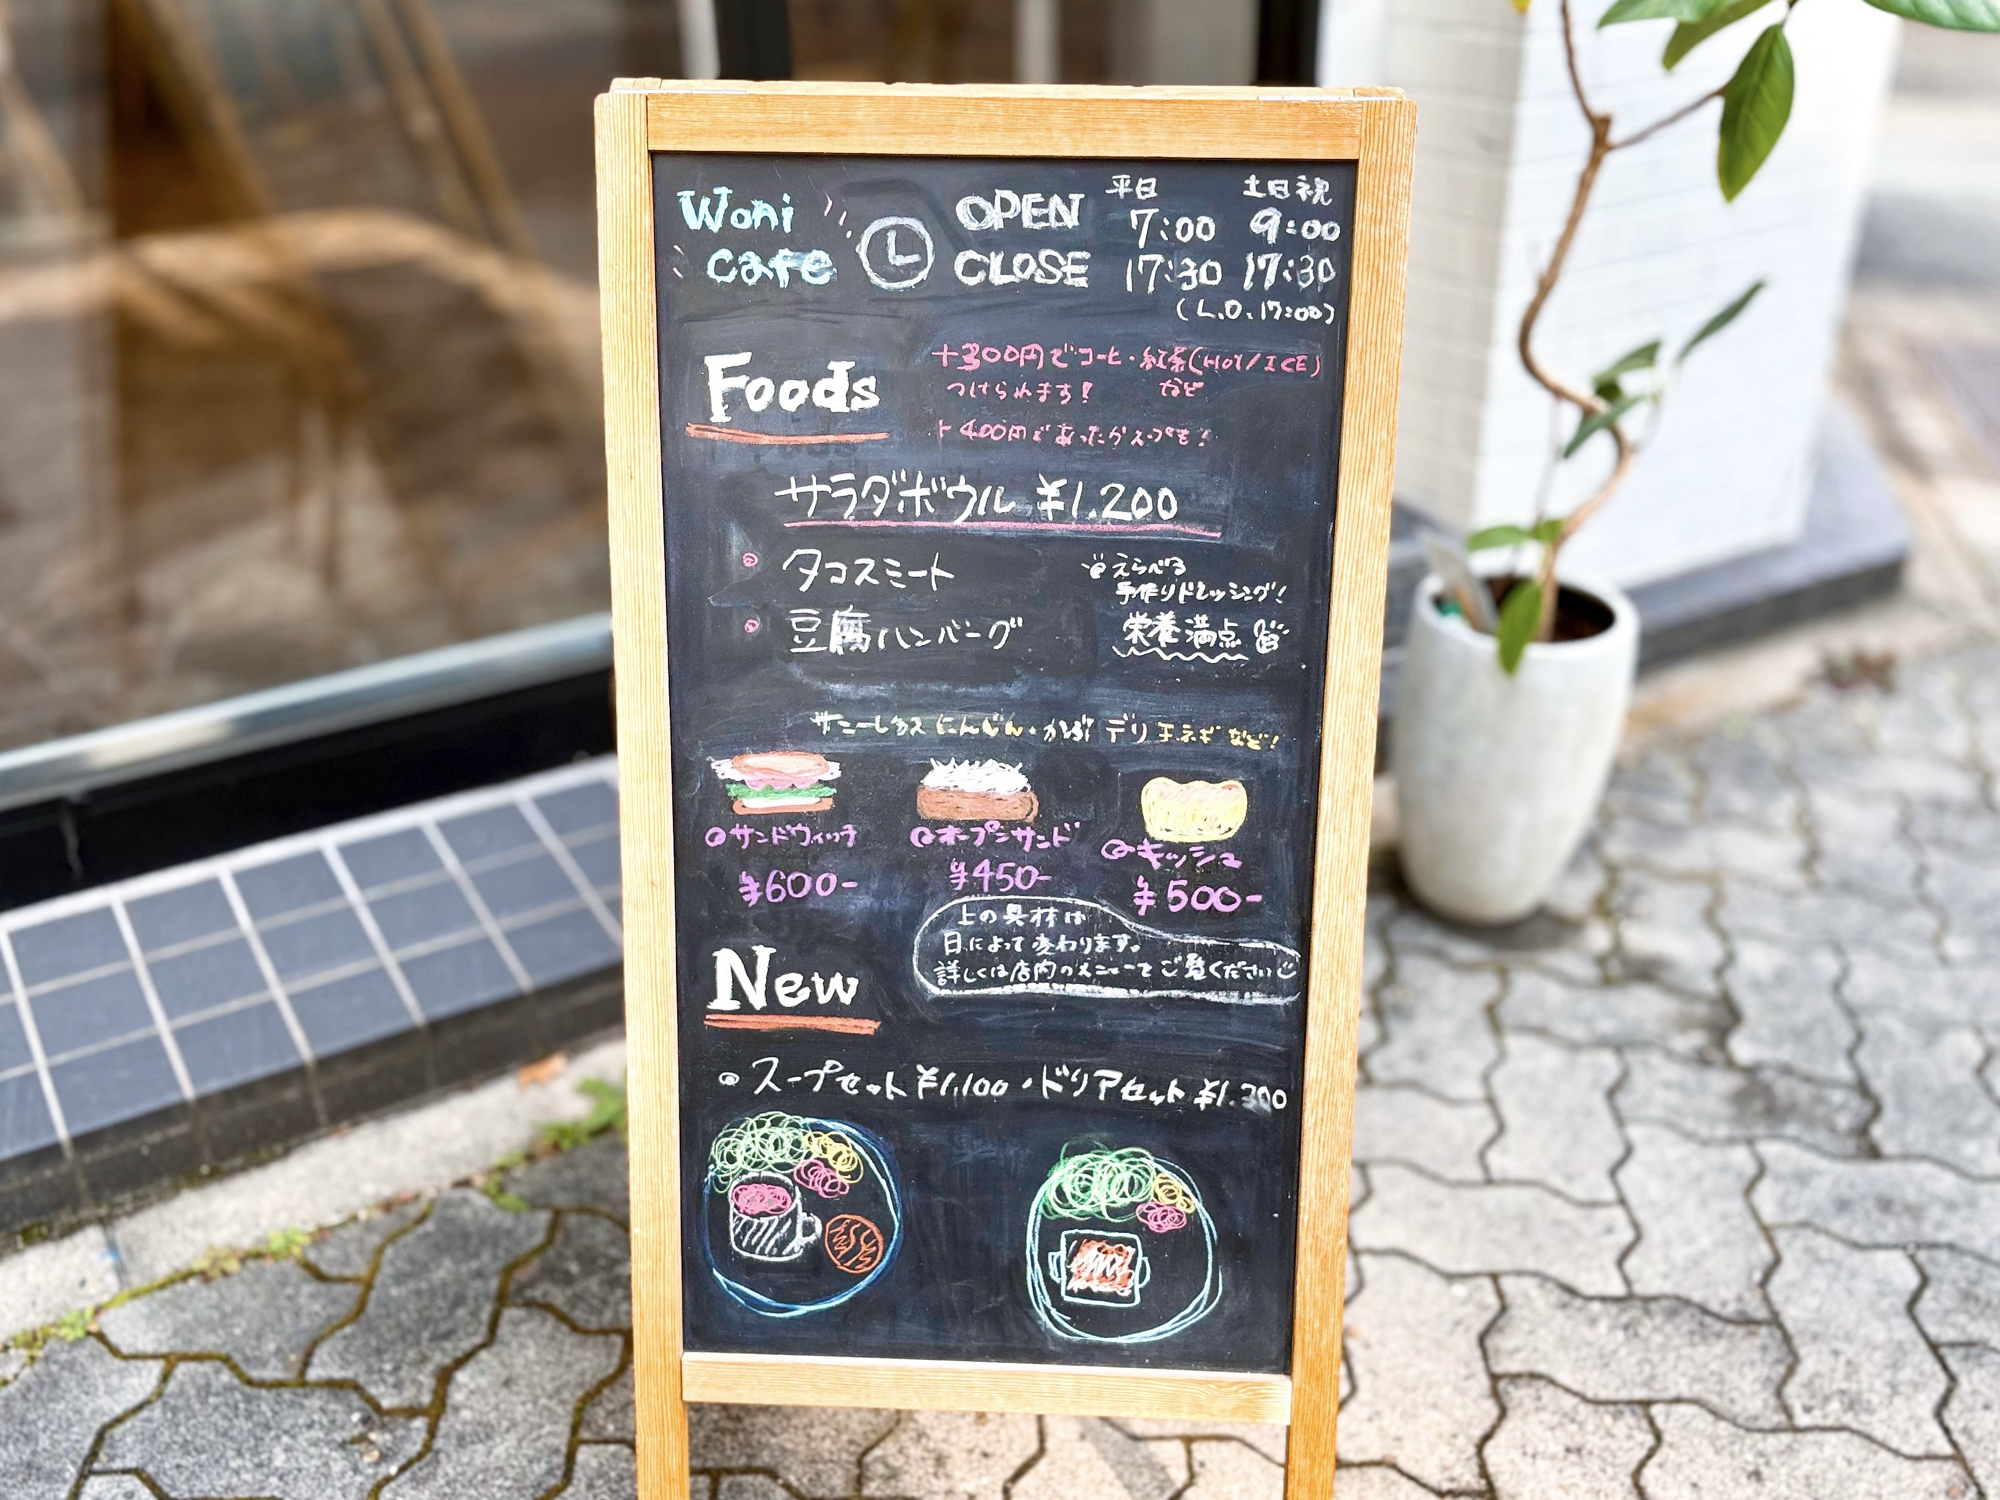 Woni
cafe
OPEN
CLOSE
平日 土日祝
7:00 9:00
17:30 17:30
(L.O.17:00)
Foods
+300円でコーヒー・紅茶(HOT/ICE)
つけられます! など
+400円であったかスープも!
サラダボウル ¥1.200
タコスミート
豆腐ハンバーグ
えらべる
手作りドレッシング!
栄養満点
サニーレタス にんじん・かぶ デリ 玉ネギ など!
サンドウィッチ
¥600-
オープンサンド
¥450-
キッシュ
¥500-
上の具材は
日によって変わります。
詳しくは店内のメニューをご覧ください
New
スープセット ¥1,100・ドリアセット ¥1.300